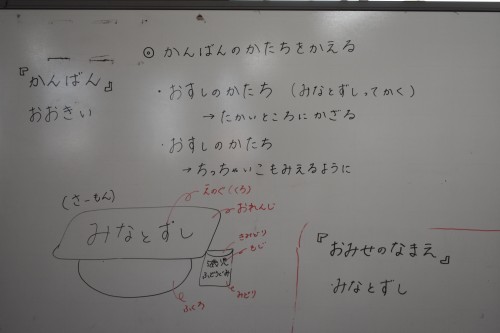 ◎ かんばんのかたちをかえる
『かんばん』
おおきい
・おすしのかたち (みなとずしってかく)
→ たかいところにかざる
・おすしのかたち
→ ちっちゃいこもみえるように
(さーもん)
えのぐ(くろ)
おれんじ
みなとずし
きみどり
もじ
みどり
ふくろ
『おみせのなまえ』
みなとずし